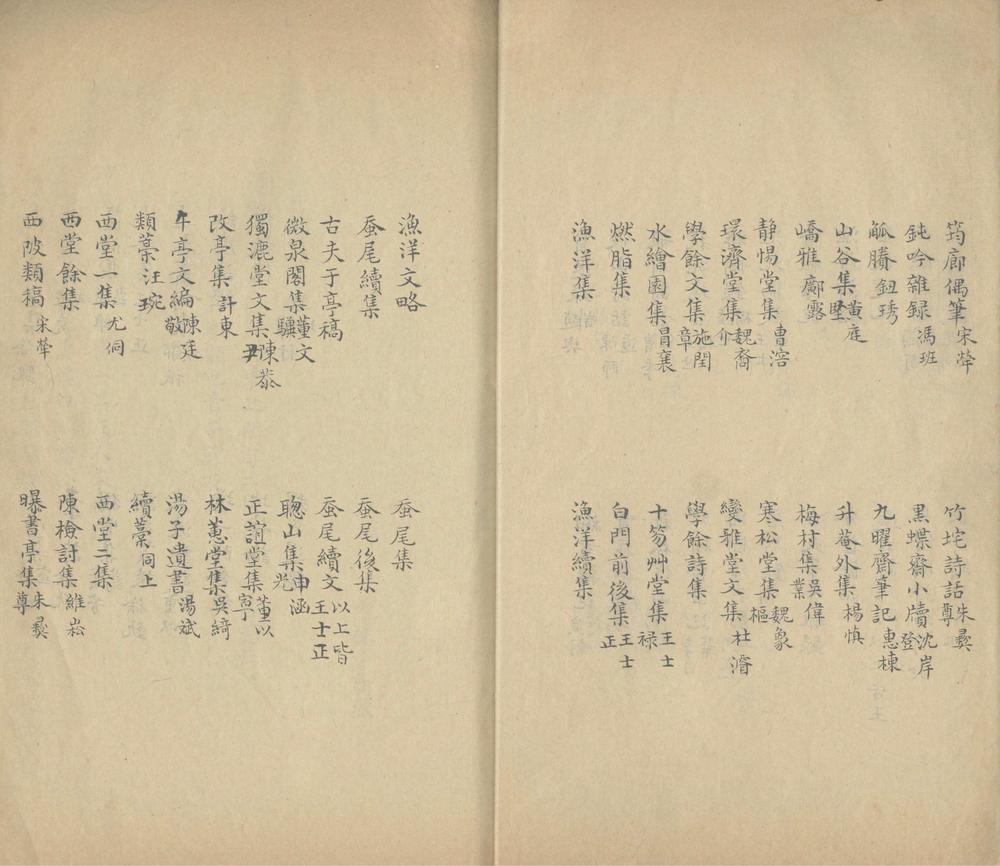 筠廊偶筆 宋犖
竹垞詩話 朱彝尊
鈍吟雜録 馮班
黑蝶齋小牘 沈岸登
觚賸 鈕琇
九曜齋筆記 惠棟
山谷集 黄庭堅
升菴外集 楊慎
嶠雅 鄺露
梅村集 吳偉業
静惕堂集 曹溶
寒松堂集 魏象樞
環濟堂集 魏裔介
變雅堂文集 杜濬
學餘文集 施閏章
學餘詩集
水繪園集 冒襄
十笏艸堂集 王士禄
燃脂集
白門前後集 王士正
漁洋集
漁洋續集
漁洋文略
蚕尾集
蚕尾續集
蚕尾後集
古夫于亭稿
蚕尾續文 以上皆王士正
微泉閣集 董文驥
聰山集 申涵光
獨漉堂文集 陳恭尹
正誼堂集 董以寧
改亭集 計東
林蕙堂集 吳綺
午亭文編 陳廷敬
湯子遺書 湯斌
類藁 汪琬
續藁 同上
西堂一集 尤侗
西堂二集
西堂餘集
陳檢討集 維崧
西陂類稿 宋犖
曝書亭集 朱彝尊